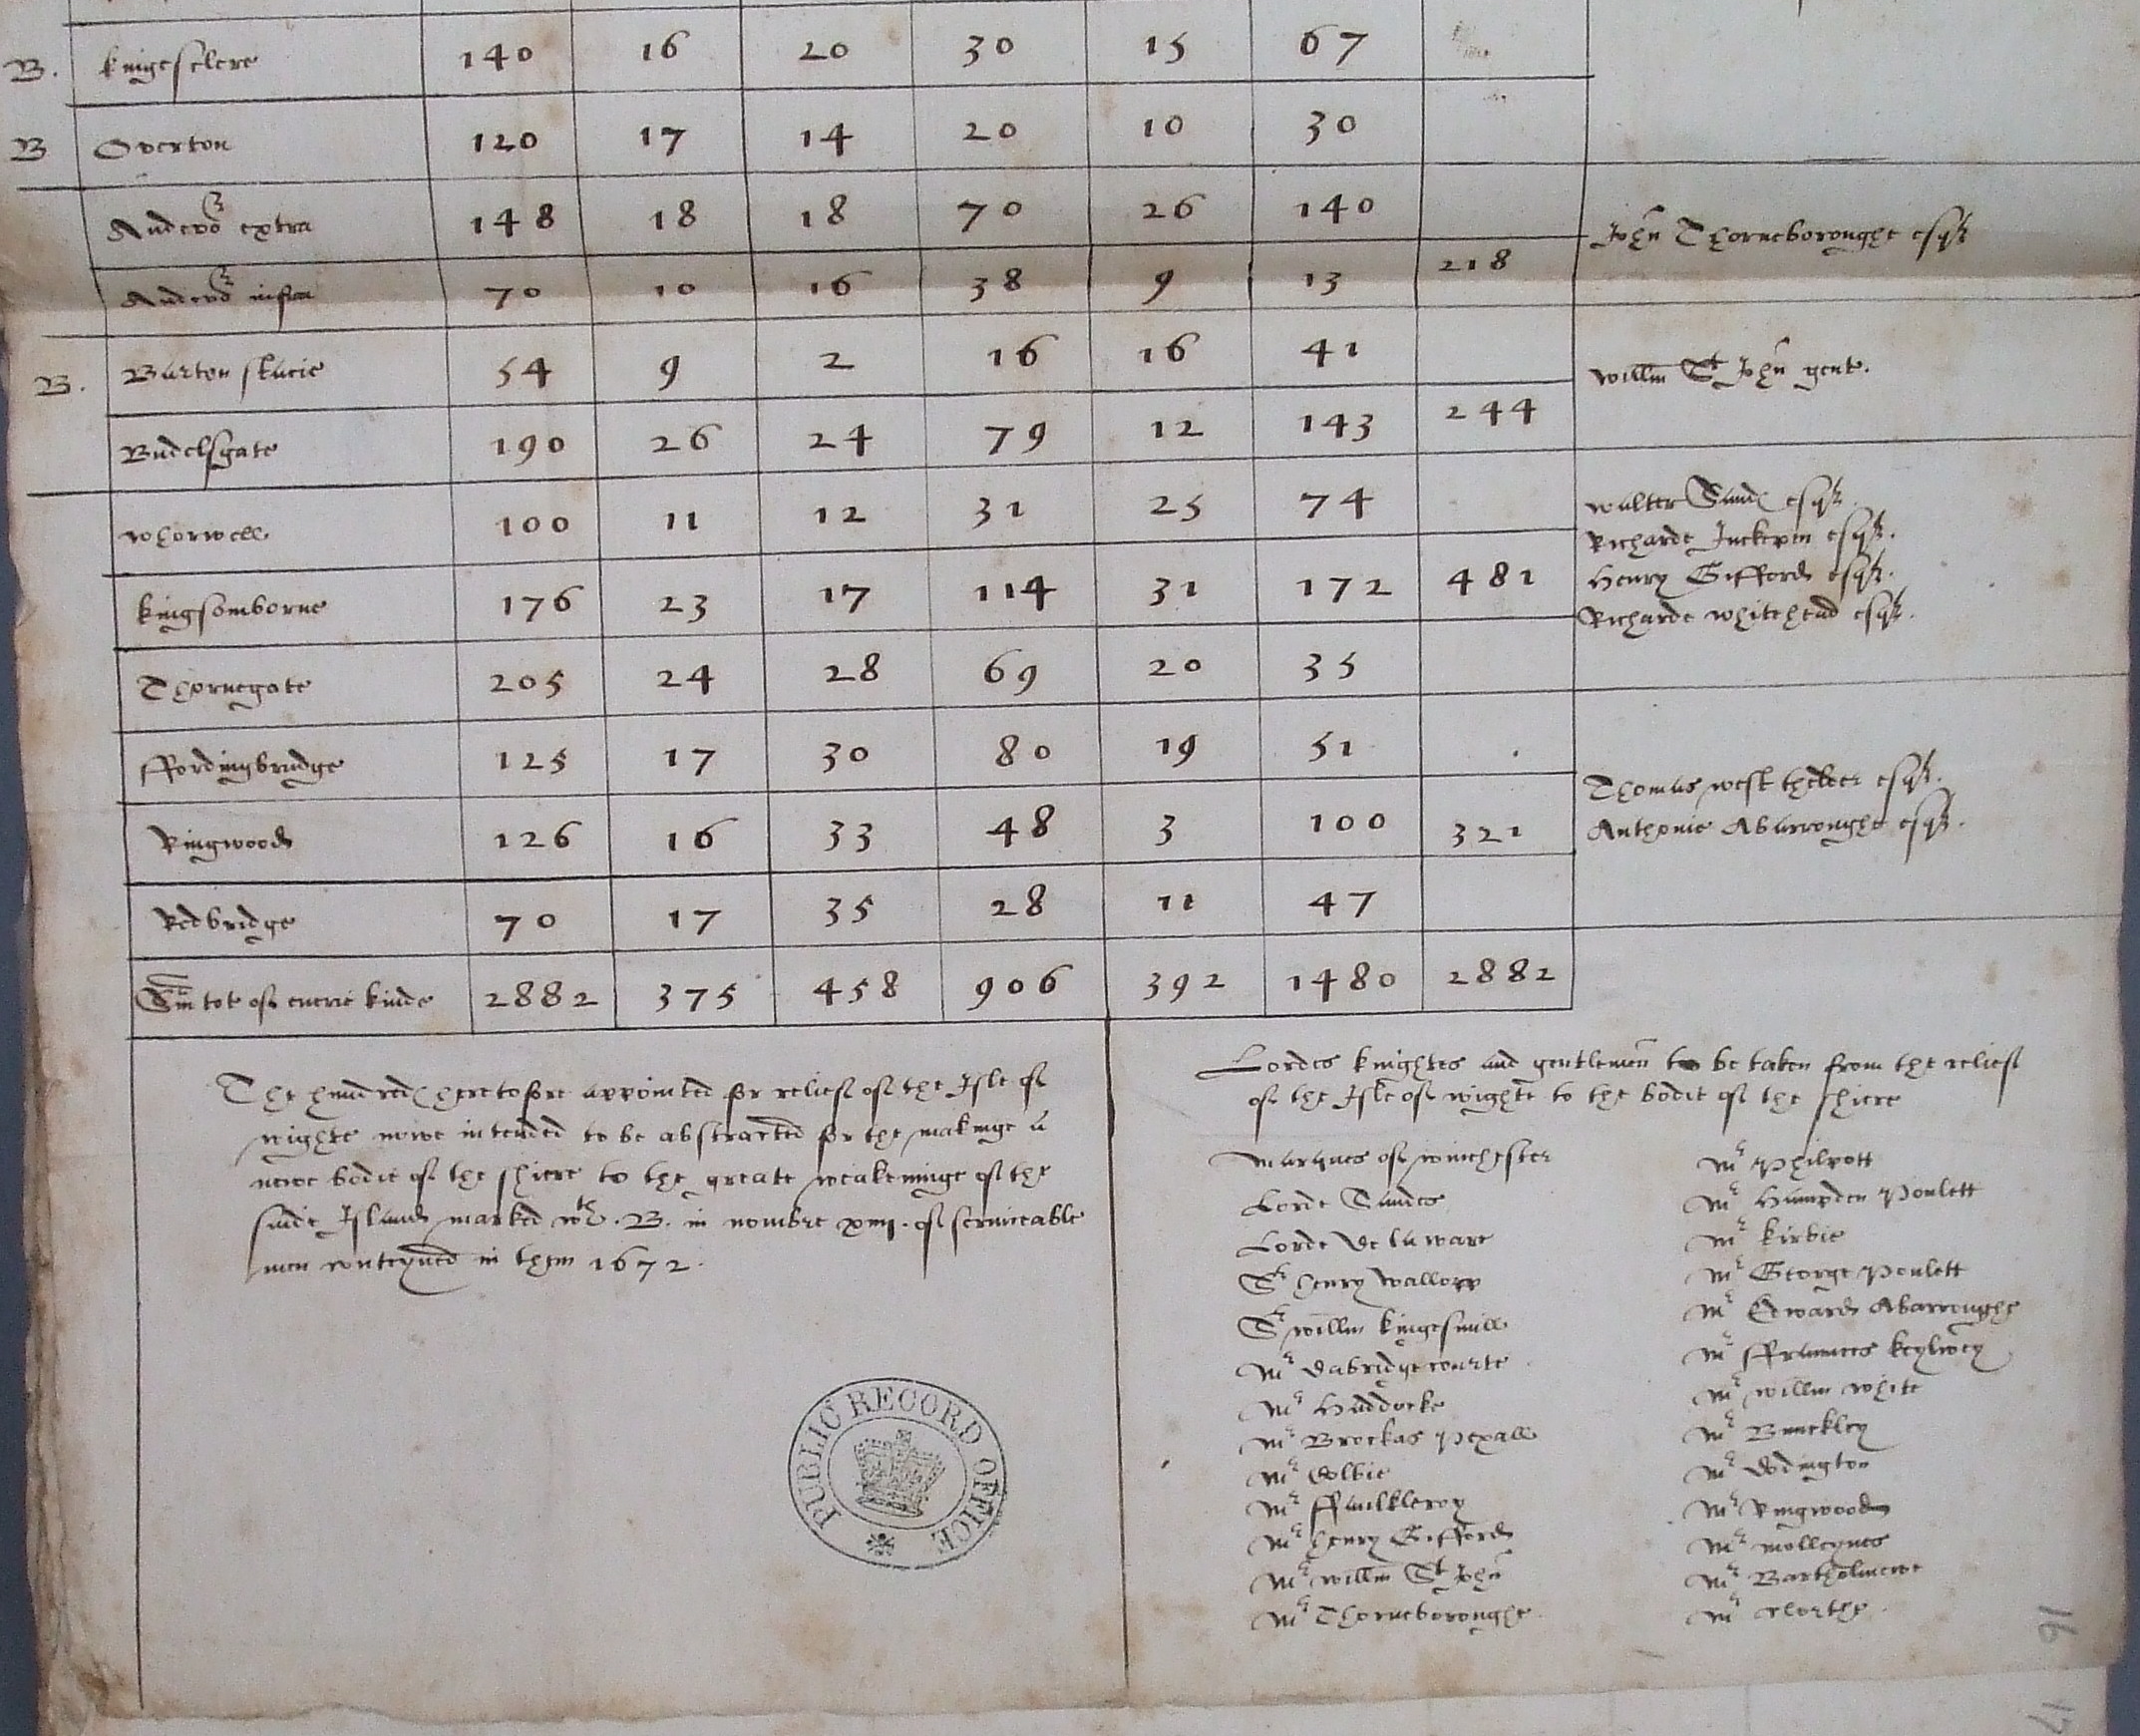 B. kingesclere 140 16 20 30 15 67
B Overton 120 17 14 20 10 30
Andevor extra 148 18 18 70 26 140
John Thorneboroughe esqr
Andevor infra 70 10 16 38 9 13 218
B. Barton stacie 54 9 2 16 16 41
Willm St John gent.
Budelsgate 190 26 24 79 12 143 244
Whorwell 100 11 12 31 25 74
Walter Sands esqr
Richarde Inkepen esqr.
kingsomborne 176 23 17 114 31 172 481
Henry Gifford esqr.
Richarde Whitehead esqr.
Thornegate 205 24 28 69 20 35
ffordingbridge 125 17 30 80 19 51
Thomas West thelder esqr.
Ringwood 126 16 33 48 3 100 321
Anthonie Abarroughe esqr.
Redbridge 70 17 35 28 11 47
Sm tot of everie kinde 2882 375 458 906 392 1480 2882
The hundreds heretofore appointed for relief of the Isle of
wighte nowe intended to be abstracted for the makinge a
newe bodie of the shiere to the greate weakeninge of the
saide Island marked wth .B. in nombre xiiij. of serviceable
men conteyned in them 1672.
Lordes knightes and gentlemen to be taken from the relief
of the Isle of wighte to the bodie of the shiere
Marques of winchester
Lorde Sandes
Lorde De la ware
Sr henry Wallopp
Sr willm kingesmill
Mr dabridgecourte
Mr Haddocke
Mr Brockas Pexall
Mr Colbie
Mr ffaulkleroy
Mr henry Gifford
Mr willm St John
Mr Thorneboroughe.
Mr Philpott
Mr Hampden Poulett
Mr kirbie
Mr George Poulett
Mr Edward Abarroughe
Mr ffraunces keylwey
Mr willm white
Mr Bunckley
Mr dodington
Mr Ringwood
Mr molleynes
Mr Bartholmewe
Mr worthe.
PUBLIC RECORD OFFICE
16
17